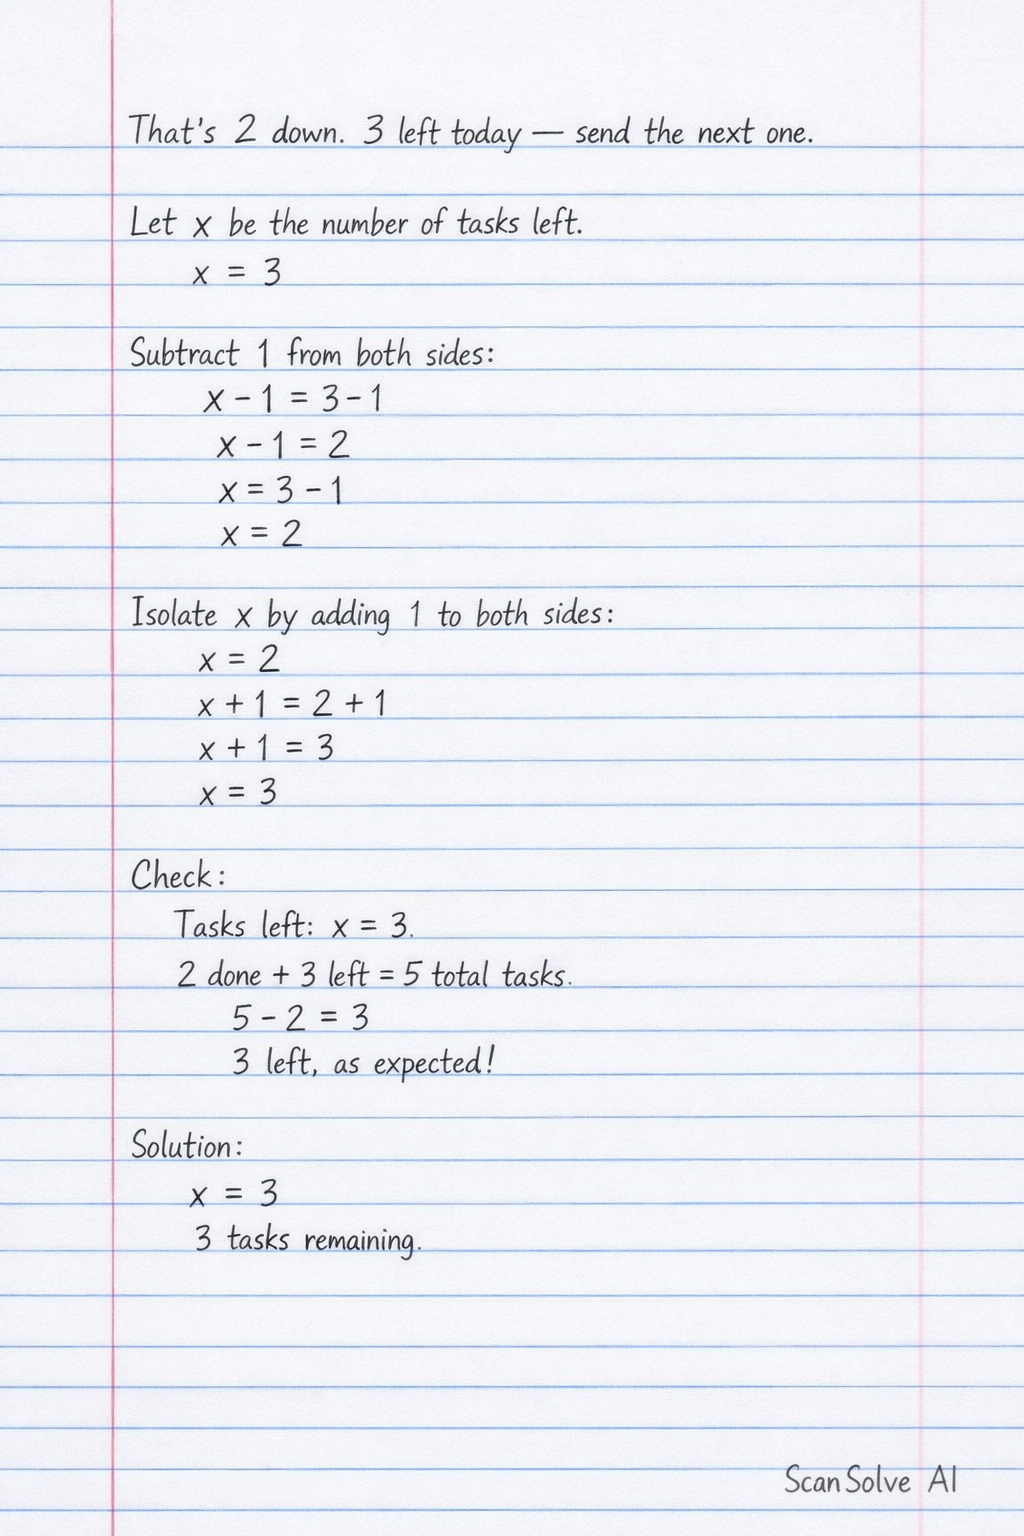 That's 2 down. 3 left today — send the next one.
Let x be the number of tasks left.
x = 3
Subtract 1 from both sides:
x - 1 = 3 - 1
x - 1 = 2
x = 3 - 1
x = 2
Isolate x by adding 1 to both sides:
x = 2
x + 1 = 2 + 1
x + 1 = 3
x = 3
Check:
Tasks left: x = 3.
2 done + 3 left = 5 total tasks.
5 - 2 = 3
3 left, as expected!
Solution:
x = 3
3 tasks remaining.
ScanSolve AI